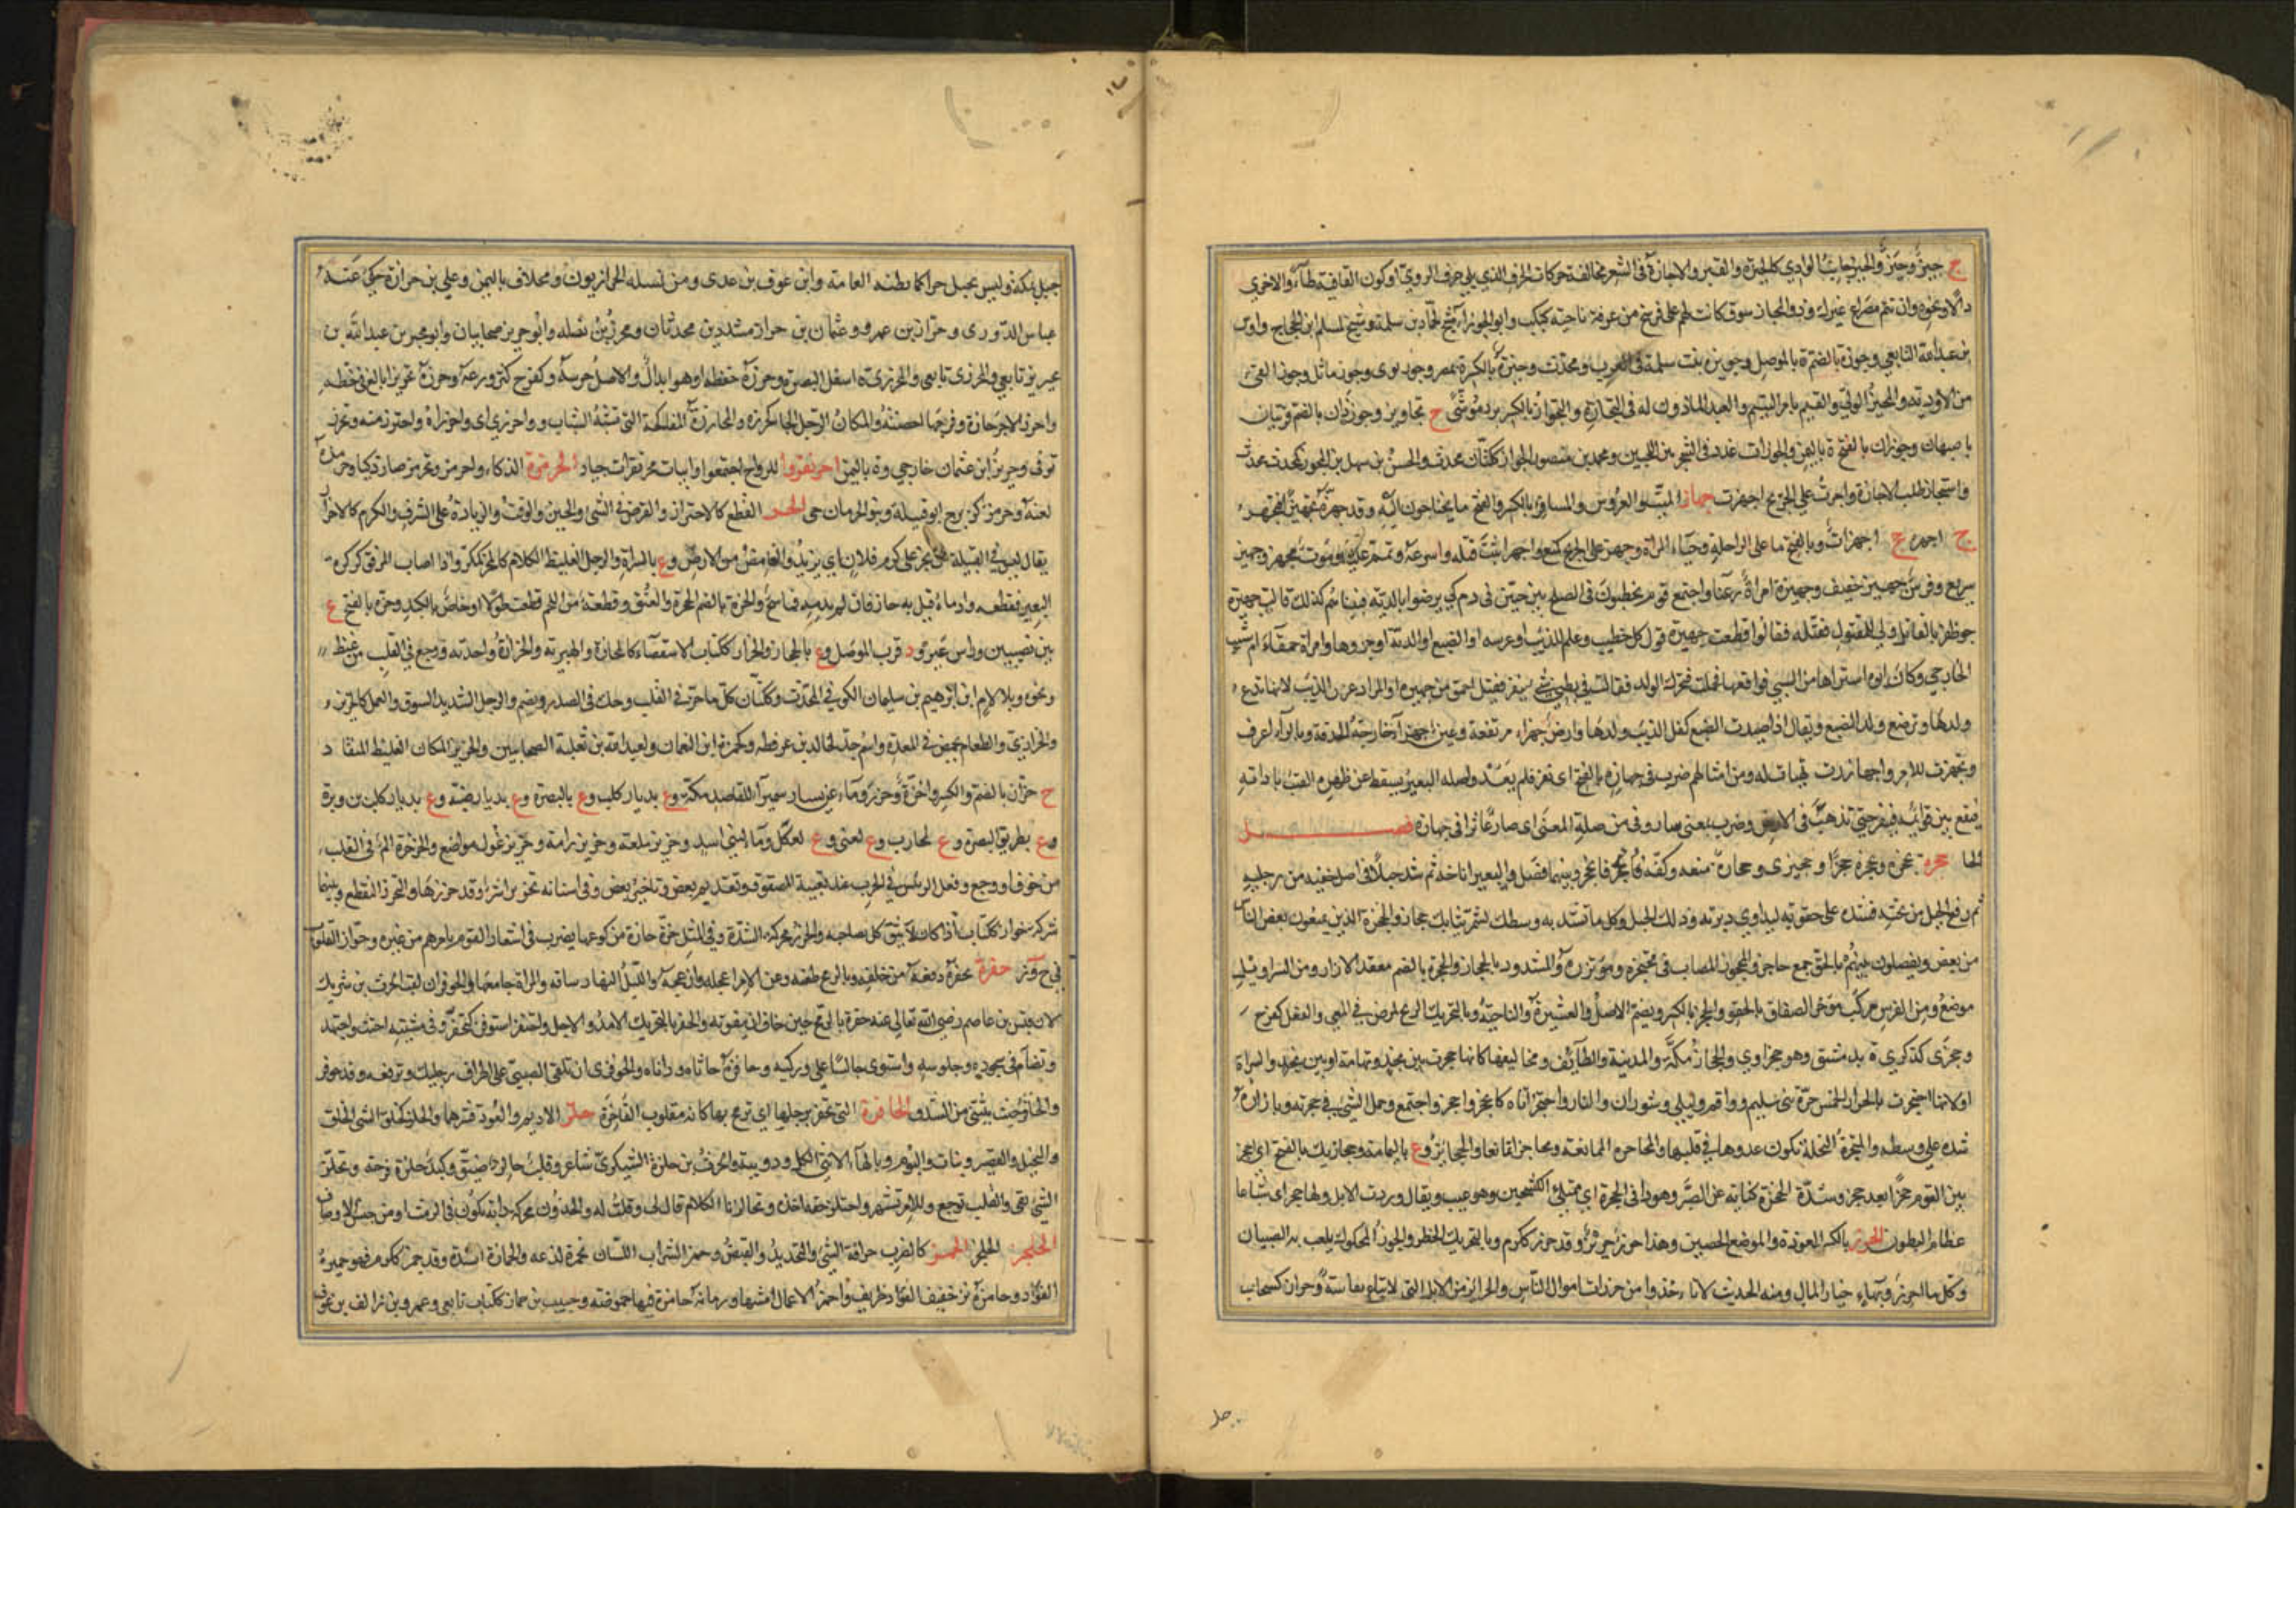 ج جيزٌ وجِيَزٌ والجيز جانب الوادي كالجيزة والقبر والاجازة في الشعر مخالفة حركات الحرف الذي يلي حرف الروي او كون القافية طاء والاخرى
دالا ونحوه وان تتم مصراع غيرك وذو المجاز سوق كانت لهم على فرسخ من عرفة بناحية كبكب وابو الجوزاء شيخ لحماد بن سلمة وشيخ لمسلم ابن الحجاج واوس
بن عبد الله التابعي وجوزة بالضم ة بالموصل وجويزة بنت سلمة في العرب ومحدث وجيزة بالكسر ة بمصر وجوز بوى وجوز ماثل وجوز القي
من الادوية والمجيز الولي والقيم بامر اليتيم والعبد الماذون له في التجارة والجواز بالكسر برد موشى ج تجاويز وجوزذان بالضم قريتان
باصبهان وجوزان بالفتح ة باليمن والجوزات غدد في الشجر بين اللحيين ومحمد بن منصور الجواز ككتان محدث والحسن بن سهل بن المجوز كمحدث محدث
واستجاز طلب الاجازة واجزت على الجريح اجهزت جهاز الميت والعروس والمسافر بالكسر والفتح ما يحتاجون اليه وقد جهزه تجهيزا فتجهز
ج اجهزة ج اجهزات وبالفتح ما على الراحلة وحياء المراة وجهز على الجريح كمنع واجهز اثبت قتله واسرعه وتمم عليه وموت مجهز وجهيز
سريع وفرس جهيز خفيف وجهيزة امراة رعناء واجتمع قوم يخطبون في الصلح بين حيين في دم كي يرضوا بالدية فبيناهم كذلك قالت جهيزة
ظفر بالقاتل ولي للمقتول فقتله فقالوا قطعت جهيزة قول كل خطيب وعلم للذئب او عرسه او الضبع او الدبة او جروها وامراة حمقاء ام شبيب
الخارجي وكان ابوه اشتراها من السبي فواقعها فحملت فتحرك الولد فقالت في بطني شيء ينقز فقيل احمق من جهيزة او المراد عرس الذئب لانها تدع
ولدها وترضع ولد الضبع ويقال اذا صيدت الضبع كفل الذئب ولدها وارض جهزاء مرتفعة وعين جهزاء خارجة الحدقة وبالراء اعرف
وتجهزت للامر واجهاززت تهيات له ومن امثالهم ضرب في جهازه بالفتح اي نفر فلم يعد واصله البعير يسقط عن ظهره القتب باداته
فيقع بين قوائمه فينفر حتى يذهب في الارض وضرب بمعنى سار وفي من صلة المعنى اي صار عاثرا في جهازه فصل
الحا حجزه يحجزه ويحجزه حجزا وحجيزى وحجازة منعه وكفه فانحجز وبينهما فصل والبعير اناخه ثم شد حبلا في اصل خفيه من رجليه
ثم رفع الحبل من تحته فشده على حقويه ليداوي دبرته وذلك الحبل وكل ما تشد به وسطك لتشمر ثيابك حجاز والحجزة الذين يمنعون بعض الناس
من بعض ويفصلون بينهم بالحق جمع حاجز والمحجوز المصاب في محتجزه ومؤتزره والمشدود بالحجاز والحجزة بالضم معقد الازار ومن السراويل
موضع ومن الفرس مركب مؤخر الصفاق بالحقو والحجز بالكسر ويضم الاصل والعشيرة والناحية وبالتحريك الزنج لمرض في المعى والفعل كفرح
وحجزى كذكرى ة بدمشق وهو حجزاوي والحجاز مكة والمدينة والطائف ومخاليفها كانها حجزت بين نجد وتهامة او بين نجد والسراة
او لانها احتجزت بالحرار الخمس حرة بني سليم وواقم وليلى وشوران والنار واحتجز اتاه كانحجز واحجز واجتمع وحمل الشيء في حجزته وبازاره
شده على وسطه والمحتجزة النخلة تكون عذوقها في قلبها والمحاجزة الممانعة وتحاجزا تمانعا والحجائز وع باليمامة وحجازيك بالفتح اي احجز
بين القوم حجزا بعد حجز وشدة الحجزة كناية عن الصبر وهو دانى الحجزة اي ممتلئ الكشحين وهو عيب ويقال وردت الابل ولها حجز اي شباعا
عظام البطون الحرز بالكسر العوذة والموضع الحصين وهذا حرز حريز وقد حرز ككرم وبالتحريك الخطر والجوز المحكوك يلعب به الصبيان
وكل ما احرز وبهاء خيار المال ومنه الحديث لا تاخذوا من حرزات اموال الناس والحرائز من الابل التي لا تباع نفاسة وحراز كسحاب
جبل بمكة وليس بجبل حراء كما يظنه العامة وابن عوف بن عدي ومن نسله الحرازيون ومخلاف باليمن وعلي بن حرازة حكى عنه
عباس الدوري وحراز بن عمرو وعثمان بن حراز مشددين محدثان ومحرز بن نضلة وابو حريز صحابيان وابو محيريز عبد الله بن
محيريز تابعي
واحرز الاجر حازه وفرجها احصنته والمكان الرجل الجاه كحرزه
توفي وحريز ابن عثمان خارجي وة باليمن احرنفزوا للرواح اجتمعوا وابيات محرنفزات جياد الحرمزة الذكاء واحرمز وتحرمز صار ذكيا وحرمزه
لعنه وحرمز كزبرج ابو قبيلة وبنو الحرمان حي الحز القطع كالاحتزاز والفرض في الشيء والحين والوقت والزيادة على الشرف والكرم كالاحزاز
يقال ليس في القبيلة من يحز على كرم فلان اي يزيد والغامض من الارض وع بالسراة والرجل الغليظ الكلام كالمحز كمكر واذا اصاب المرفق كركرة
البعير فقطعه وادماه قيل به حاز فان لم يدمه فماسح والحزة بالضم الحجزة والعنق وقطعة من اللحم قطعت طولا او خاص بالكبد وحزة بالفتح ع
بين نصيبين وراس عين ود قرب الموصل وع بالحجاز والحزاز ككتاب الاستقصاء كالمحازة والهبرية والحزازة واحدته ووجع في القلب من غيظ
ونحوه وبلا لام ابن ابرهيم بن سليمان الكوفي المحدث وككتان كل ما حز في القلب وحك في الصدر ويضم والرجل الشديد السوق والعمل كالحزيز
والحزازي والطعام يحمض في المعدة واسم جد لخالد بن عرفطة وكحمزة ابن النعمان ولعبد الله بن ثعلبة الصحابيين والحزيز المكان الغليظ المنقاد
ج حزان بالضم والكسر واحزة وحزز وماء عن يسار سميراء للقاصد مكة وع بديار كلب وع بالبصرة وع بديار ضبة وع بديار كلب بن وبرة
وع بطريق البصرة وع لمحارب وع لغني وع لعكل وماء لبني اسد وحزيز تلعة وحزيز رامة وحزيز غول مواضع والحزحزة الم في القلب
من خوف او وجع وفعل الرئيس في الحرب عند تعبية الصفوف وتقديم بعض وتاخير بعض وفي اسنانه تحزيز اشر وقد حززها والتحزز التقطع وبينهما
شركة حزاز ككتاب اذا كان لا يثق كل بصاحبه والحزز محركة الشدة وفي المثل حزت حازة من كوعها يضرب في اشتغال القوم بامرهم عن غيره وحواز القلوب
في ح وز حفزه يحفزه دفعه من خلفه وبالرمح طعنه وعن الامر اعجله وازعجه والليل النهار ساقه والمراة جامعها والحوفزان لقب الحرث بن شريك
لان قيس بن عاصم رضي الله تعالى عنه حفزه بالرمح حين خاف ان يفوته والحفز بالتحريك الامد والاجل واحتفز استوفز كتحفز وفي مشيته احتث واجتهد
وتضام في سجوده وجلوسه واستوى جالسا على وركيه وحافزه جاثاه وداناه والحوفزى ان تلقي الصبي على اطراف رجليك وترفعه وقد حوفز
والحافز حيث ينثني من الشدق الحاقزة التي تحقز برجلها اي ترمح بها كانه مقلوب القاحزة حلز الاديم والعود قشرهما والحلز كجلق السيئ الخلق
والبخيل والقصير ونبات والبوم وبالهاء الانثى الكل ودويبة والحرث بن حلزة اليشكري شاعر وقلب حالز ضيق وكبد حلزة قرحة وتحلز
الشيء بقي والقلب توجع وللامر تشمر واحتلز حقه اخذه وتحالزنا الكلام قال لي وقلت له والحلزون محركة دابة تكون في الرمث او من جنس الاصداف
الحلجز الحلجز الحمز كالضرب حرافة الشيء والتحديد والقبض وحمز الشراب اللسان يحمزه لذعه والحمازة الشدة وقد حمز ككرم فهو حميز
الفؤاد وحامزه نز خفيف الفؤاد ظريف واحمز الاعمال امتنها ورمانة حامزة فيها حموضة وحبيب بن حماز ككتاب تابعي وعمرو بن زالف بن عوف